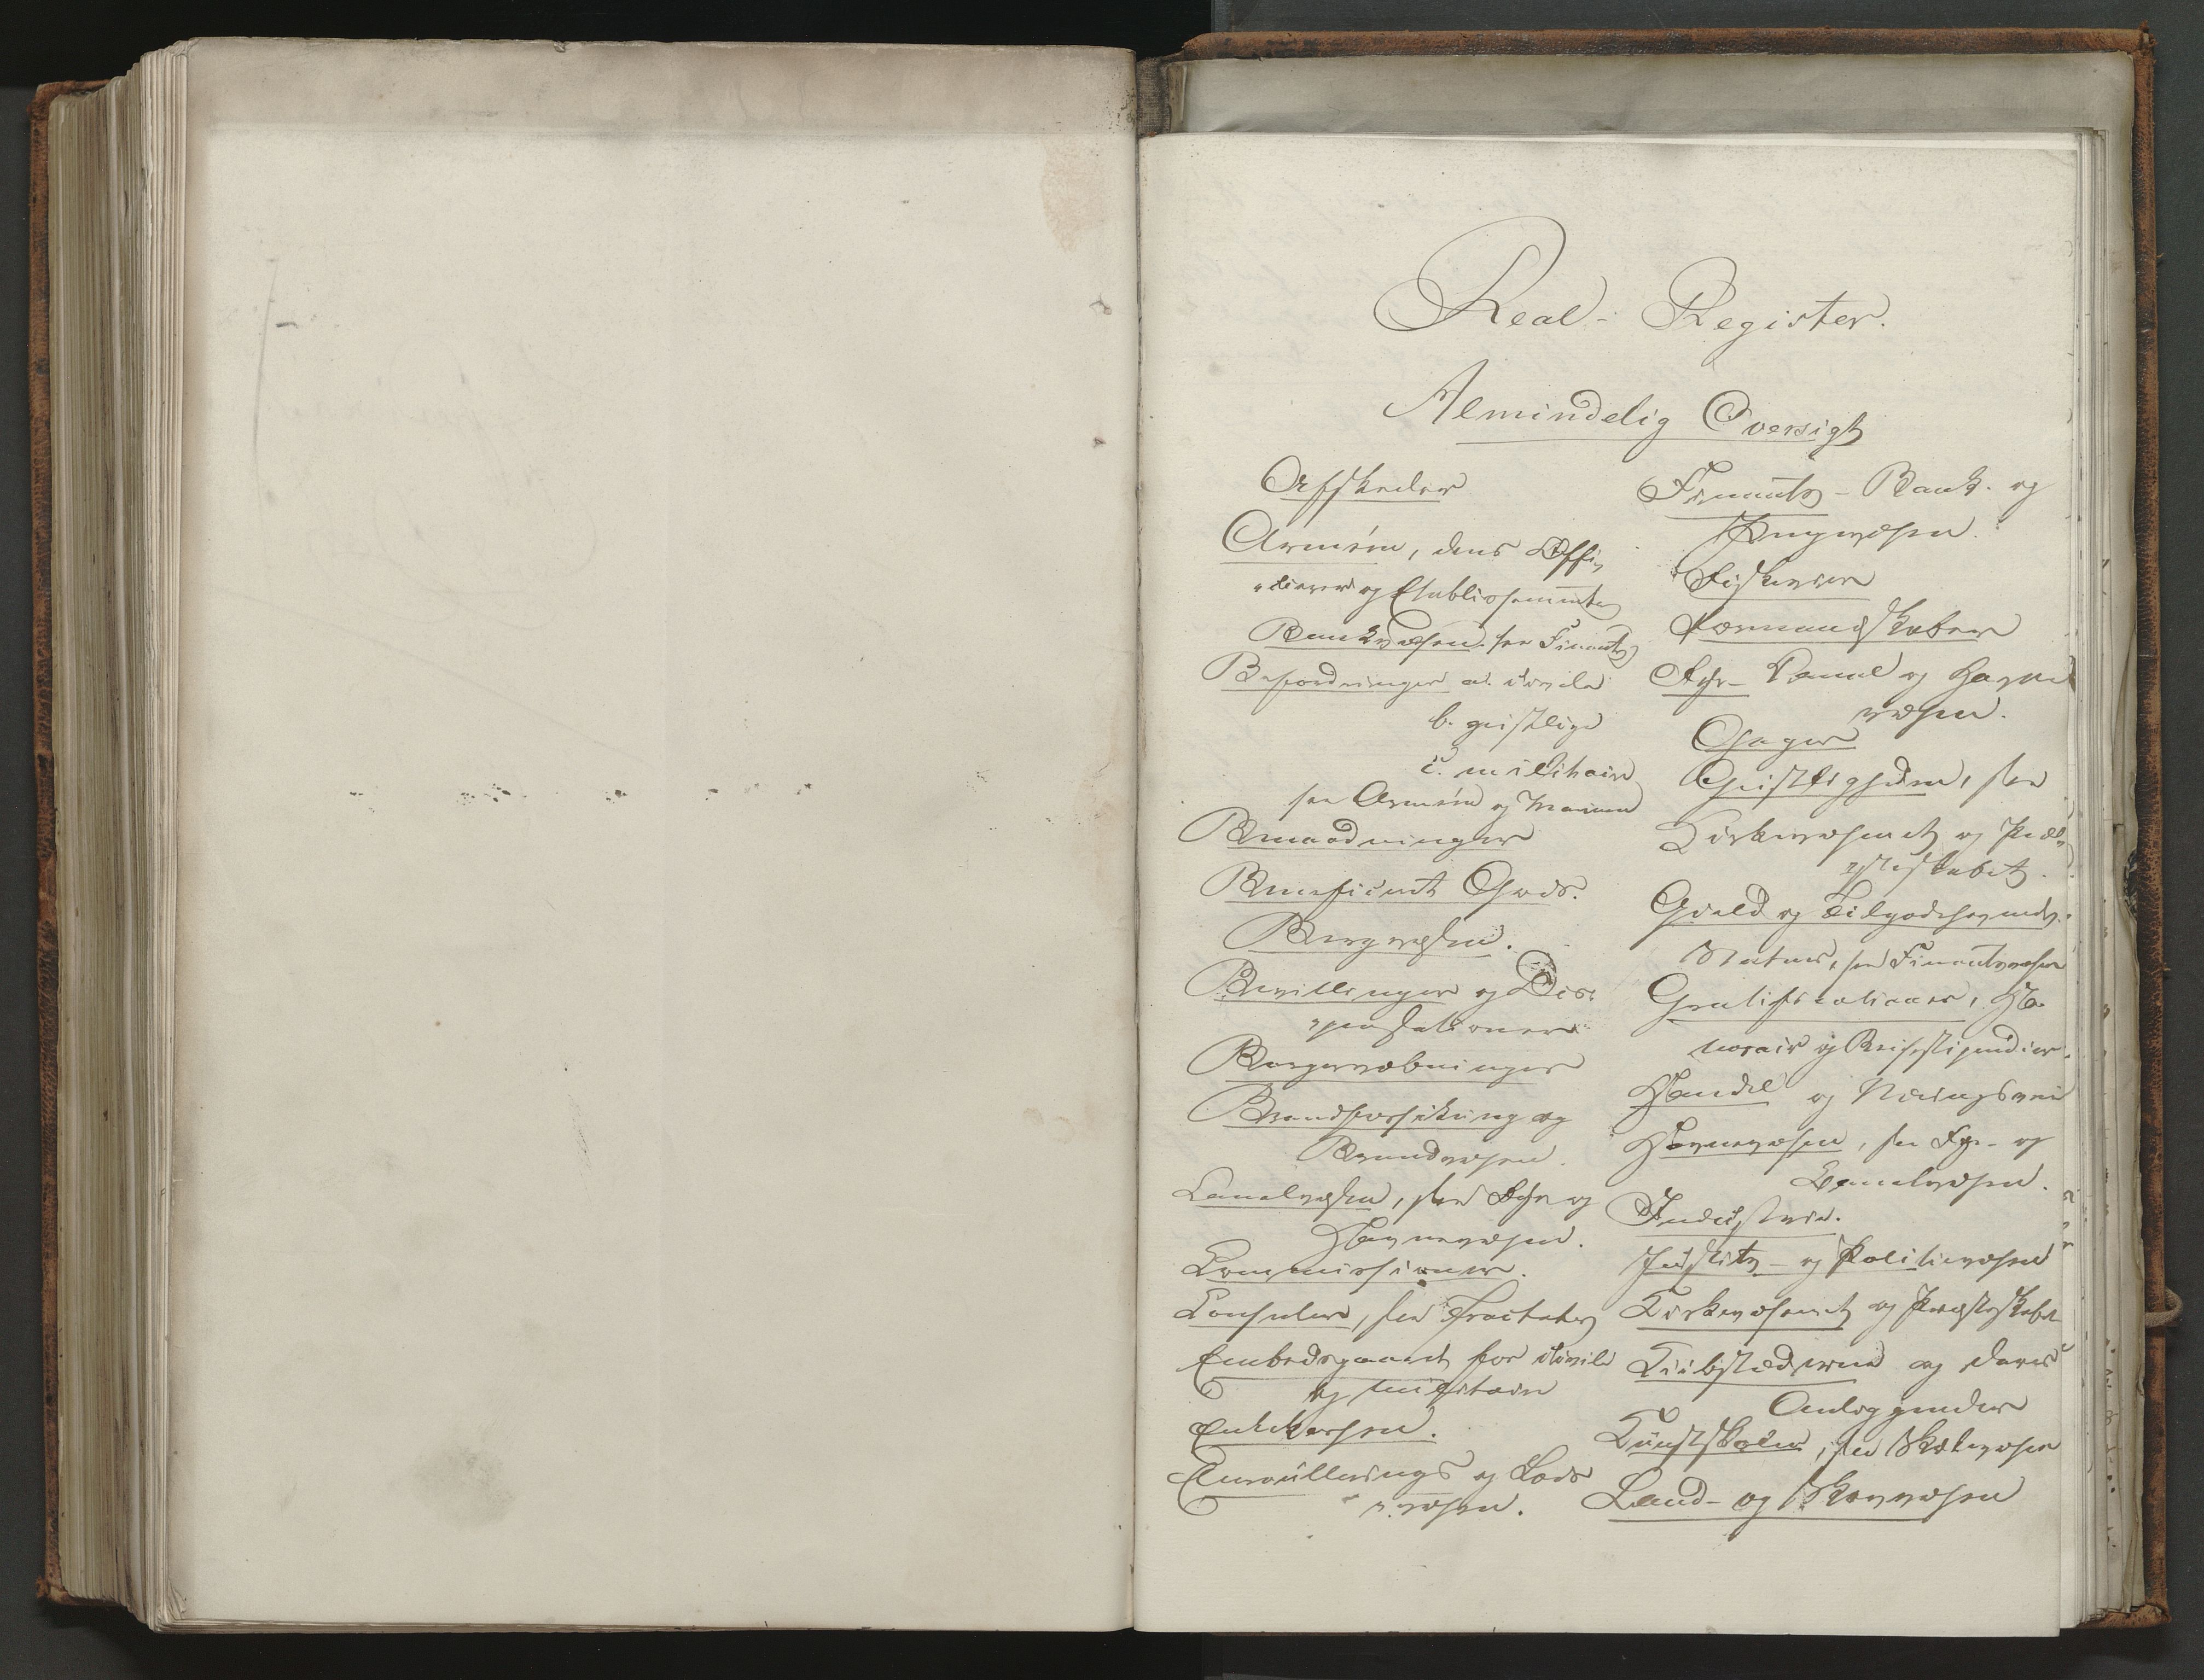 Real-Register.
Almindelig Oversigt
Afskeder
Armeen, dens Offi-
cierer og Etablissementer
Bankvæsen. see Finants
Befordringer a. civile
b. geistlige
c. militaire
see Armeen og Marinen
Benaadninger
Beneficeret Gods.
Bergvæsen.
Bevillinger og Dis-
pensationer
Borgervæbninger
Brandforsikring og
Brandvæsen.
Canalvæsen, see Fyr og
Havnevæsen.
Commissioner.
Consuler, see Tractater
Embedsgaard for civile
og militaire
Enkekassen.
Enroullerings og Lods
væsen.
Finants- Bank- og
Pengevæsen.
Fiskerier
Formandskaber
Fyr- Canal og Havne
væsen.
Gager
Geistligheden, see
Kirkevæsenet og Præ-
steskabet.
Gjeld og Tilgodehavende
Status, see Finantsvæsen
Gratificationer, Ho-
norair og Reisestipendier.
Handel og Næringsveie
Havnevæsen, see Fyr- og
Canalvæsen.
Industrie.
Justits- og Politievæsen
Kirkevæsenet og Præsteskabet
Kiøbstæderne og deres
Anliggender
Kunstskoler, see Skolevæsen
Land- og Skovvæsen